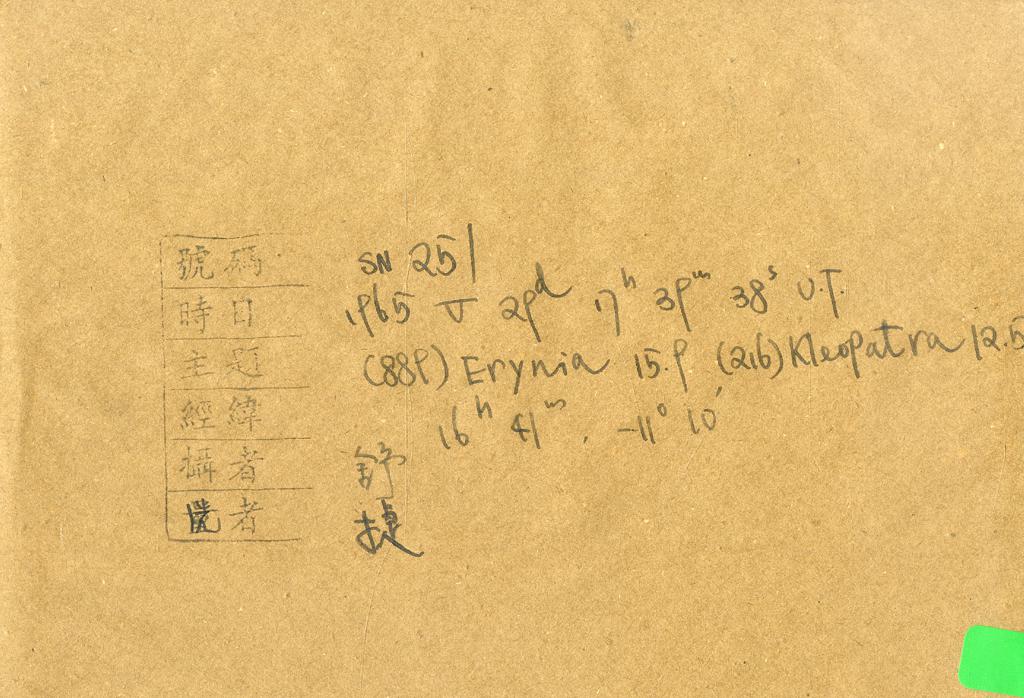 號碼 SN 251
時日 1965 J 29ᵈ 17ʰ 39ᵐ 38ˢ U.T.
主題 (889) Erynia 15.9 (216) Kleopatra 12.5
經緯 16ʰ 41ᵐ, -11° 10′
攝者 舒
者 捷